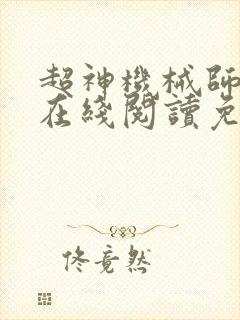 超神機械師
在綫閱讀免
佟竟然